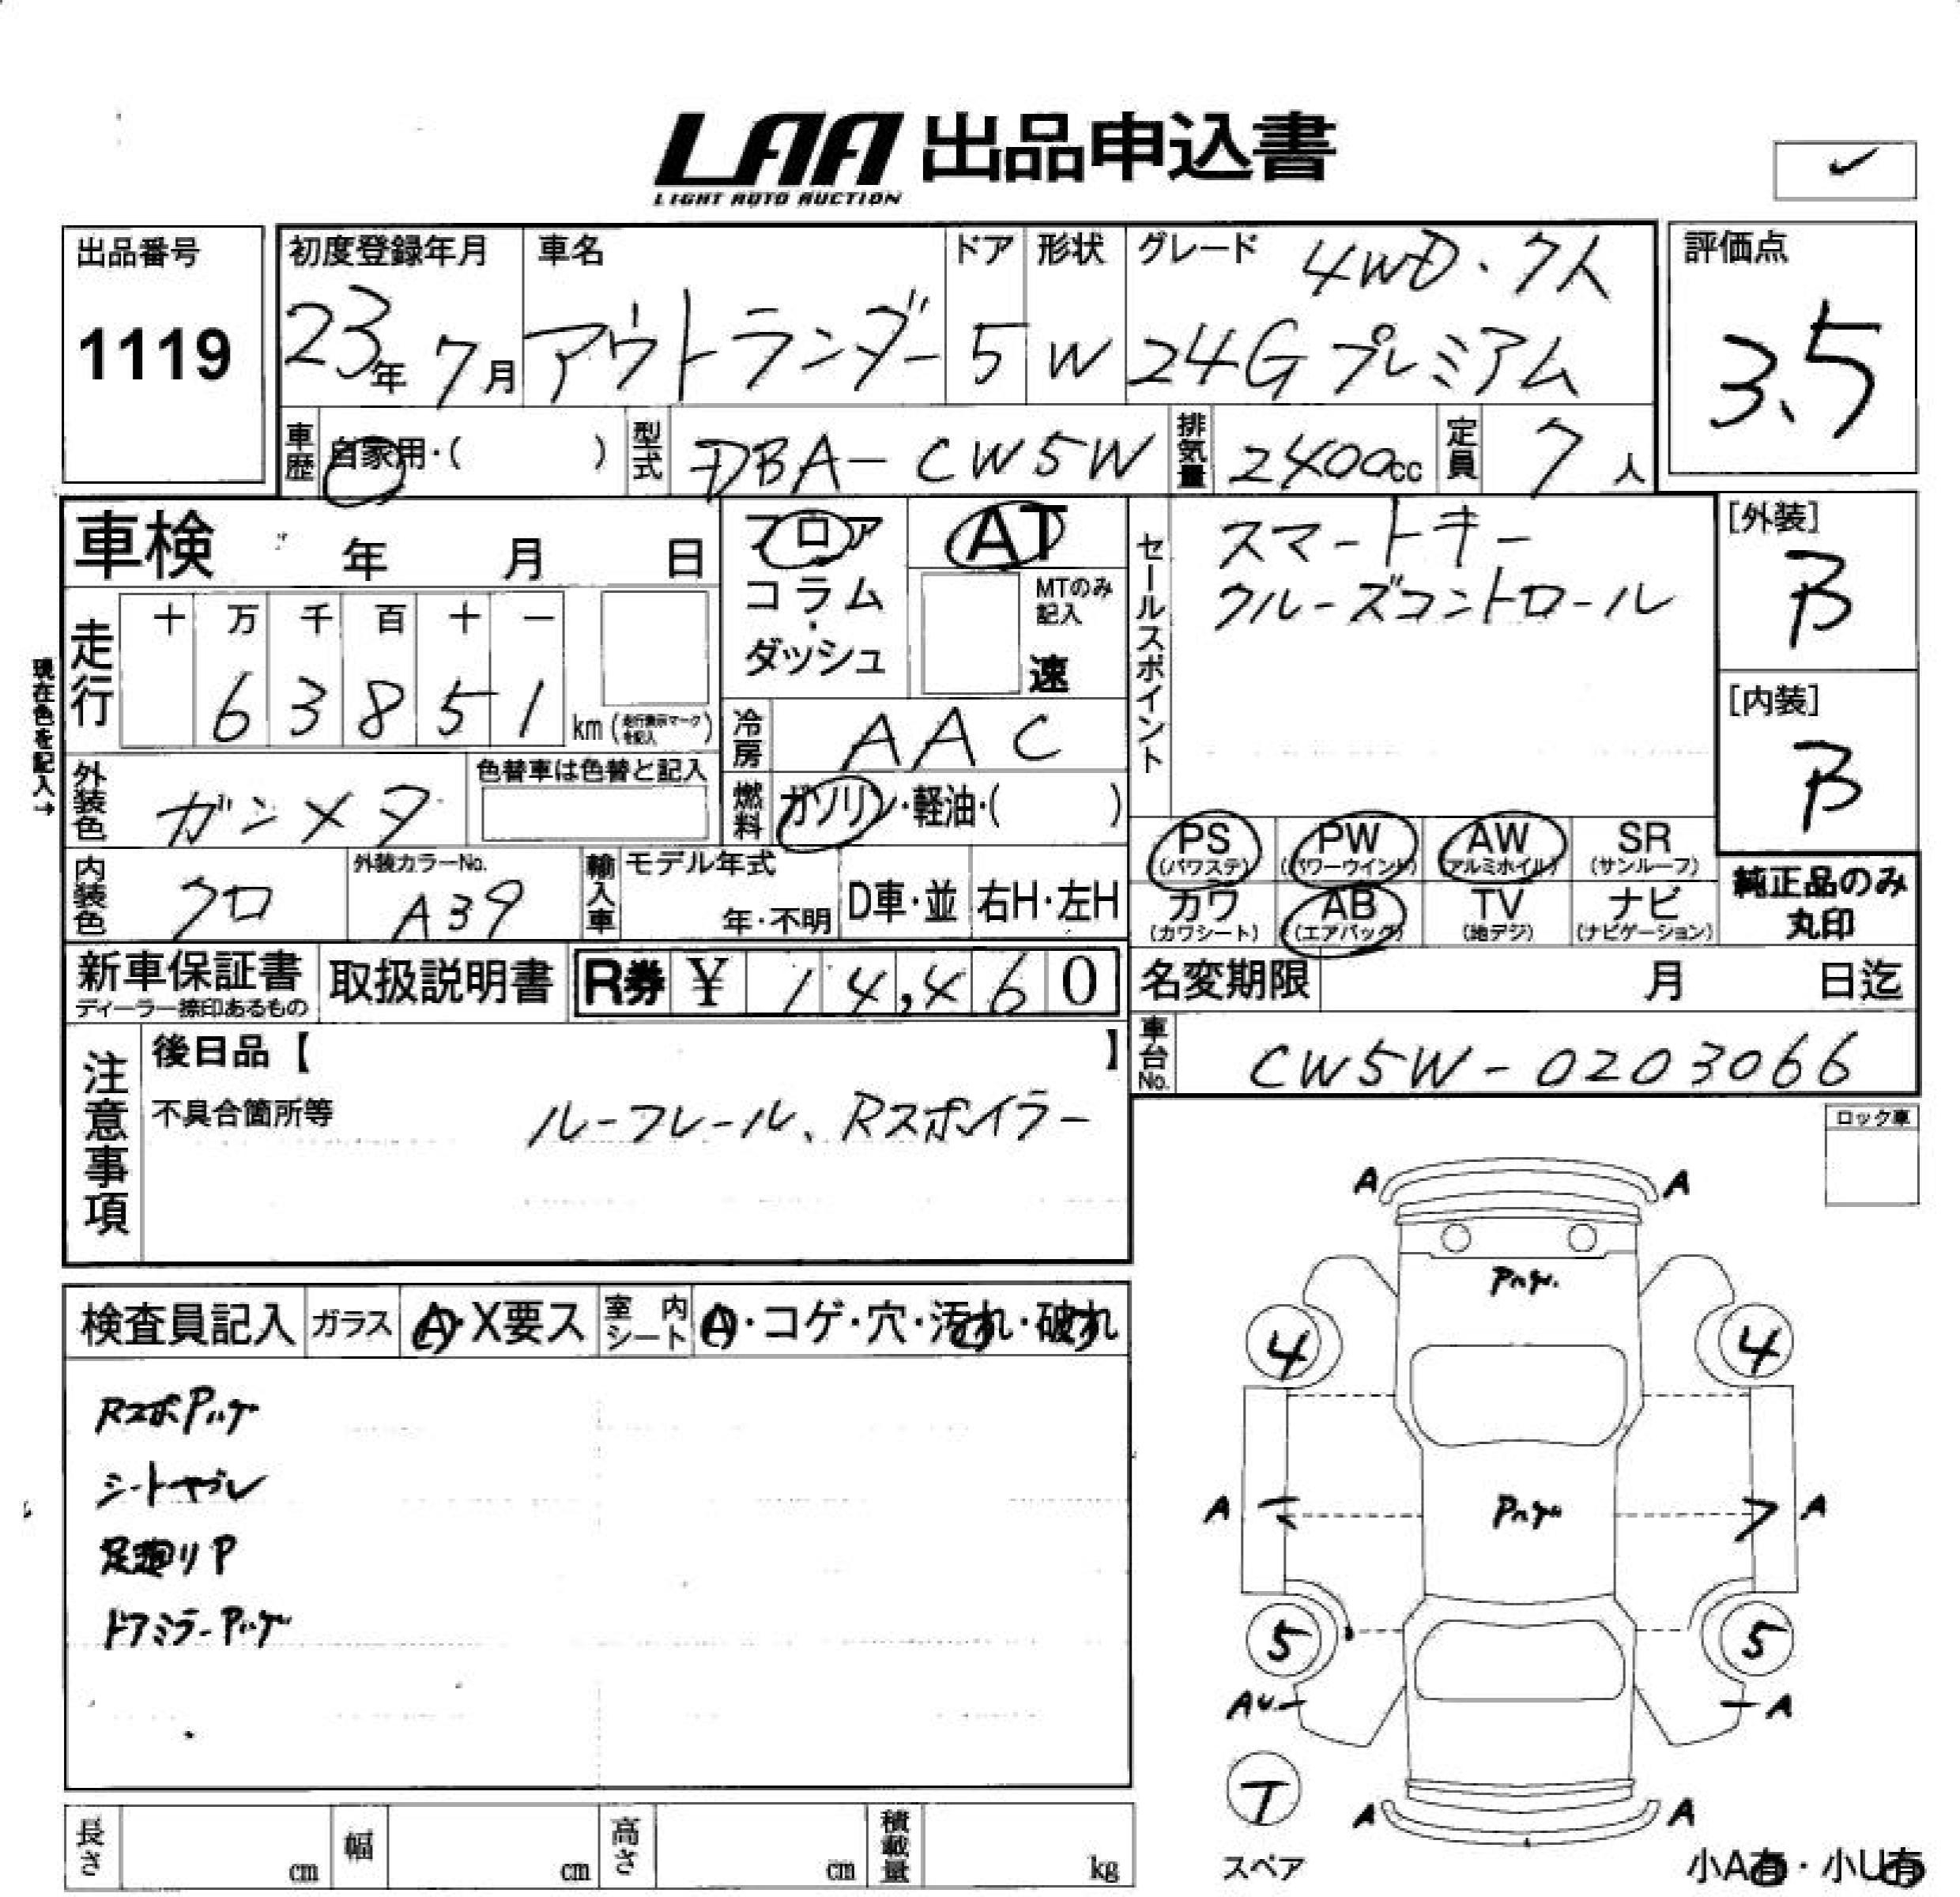 LAA 出品申込書
LIGHT AUTO AUCTION
出品番号
1119
初度登録年月
23年 7月
車名
アウトランダー
ドア
5
形状
W
グレード
4WD・7人
24Gプレミアム
評価点
3.5
車歴
自家用・( )
型式
DBA-CW5W
排気量
2400cc
定員
7人
車検 年 月 日
走行
十 万 千 百 十 一
6 3 8 5 1
km (走行表示マークを記入)
現在色を記入→
フロア
コラム・
ダッシュ
AT
MTのみ
記入
速
冷房
AAC
燃料
ガソリン・軽油・( )
セールスポイント
スマートキー
クルーズコントロール
[外装]
B
[内装]
B
外装色
ガンメタ
色替車は色替と記入
内装色
クロ
外装カラーNo.
A39
輸入車
モデル年式
年・不明
D車・並
右H・左H
PS
(パワステ)
PW
(パワーウインド)
AW
(アルミホイル)
SR
(サンルーフ)
カワ
(カワシート)
AB
(エアバック)
TV
(地デジ)
ナビ
(ナビゲーション)
純正品のみ
丸印
新車保証書
ディーラー捺印あるもの
取扱説明書
R券 ¥ 14,460
名変期限 月 日迄
車台No.
CW5W-0203066
注意事項
後日品【 】
不具合箇所等
ルーフレール、Rスポイラー
ロック車
検査員記入
ガラス
A・X要ス
室内シート
A・コゲ・穴・汚れ・破れ
RスポPハゲ
シートヤブレ
足廻りP
ドアミラーPハゲ
A A
Pハゲ
4 4
A Pハゲ A
5 5
AU A
T
スペア
A A
小A有・小U有
長さ cm
幅 cm
高さ cm
積載量 kg